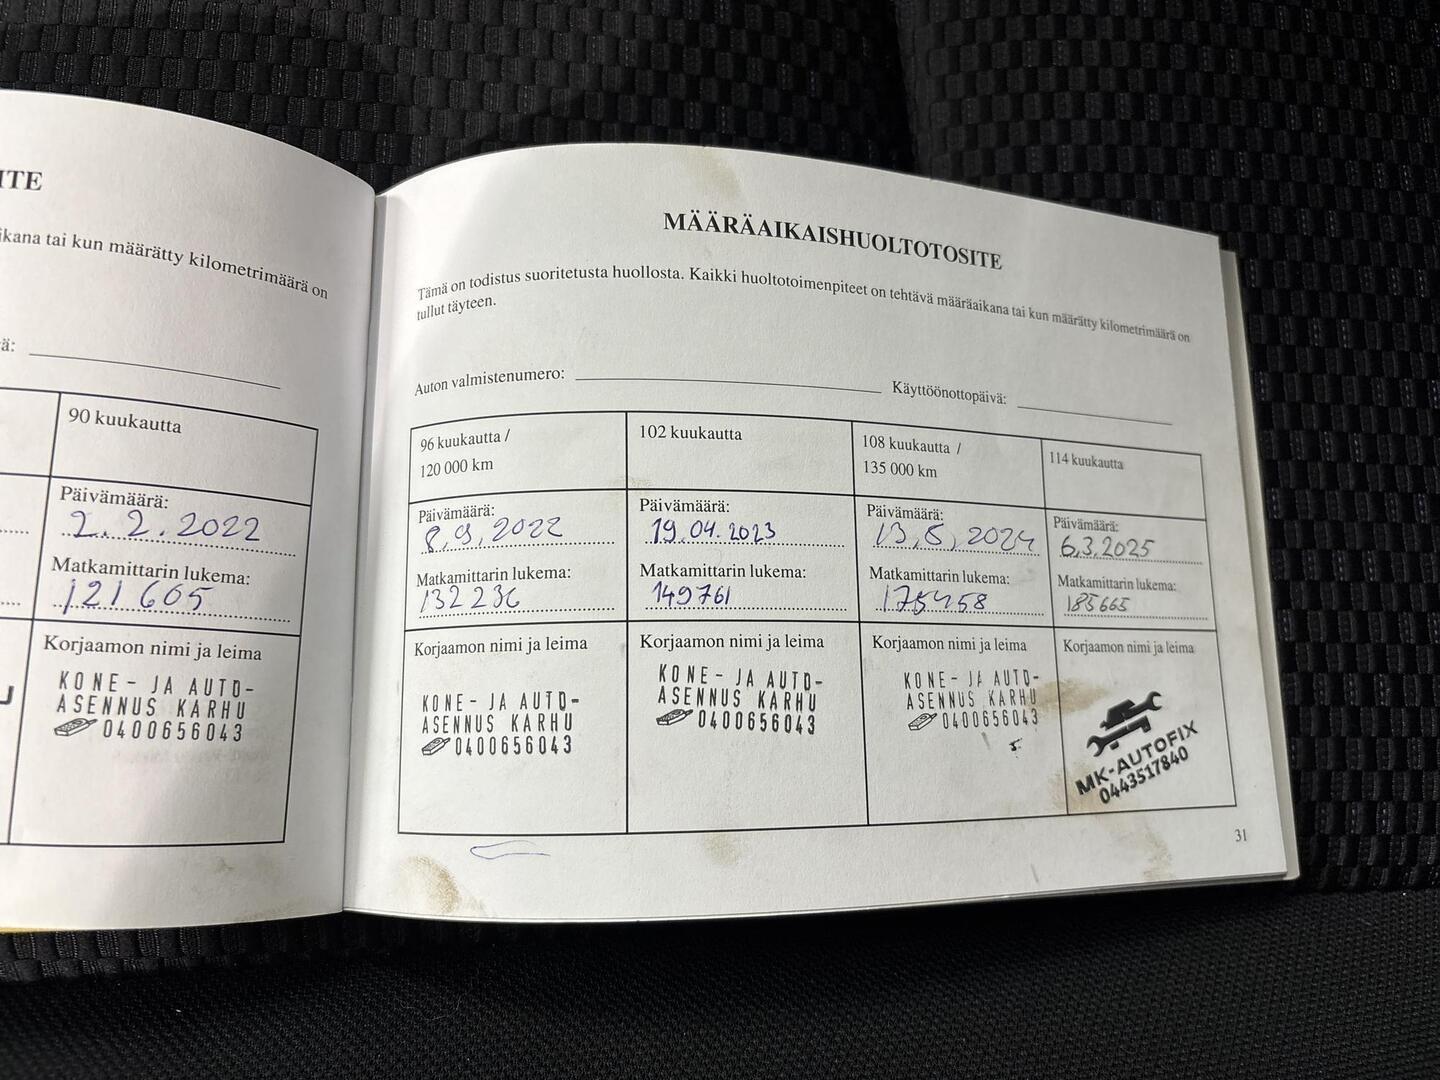 ITE
ikana tai kun määrätty kilometrimäärä on
ä:
90 kuukautta
Päivämäärä:
2.2.2022
Matkamittarin lukema:
121 605
Korjaamon nimi ja leima
KONE- JA AUTO-
ASENNUS KARHU
0400656043
MÄÄRÄAIKAISHUOLTOTOSITE
Tämä on todistus suoritetusta huollosta. Kaikki huoltotoimenpiteet on tehtävä määräaikana tai kun määrätty kilometrimäärä on
tullut täyteen.
Auton valmistenumero: Käyttöönottopäivä:
96 kuukautta /
120 000 km
Päivämäärä:
8,9,2022
Matkamittarin lukema:
132 236
Korjaamon nimi ja leima
KONE- JA AUTO-
ASENNUS KARHU
0400656043
102 kuukautta
Päivämäärä:
19.04.2023
Matkamittarin lukema:
149761
Korjaamon nimi ja leima
KONE- JA AUTO-
ASENNUS KARHU
0400656043
108 kuukautta /
135 000 km
Päivämäärä:
13,5,2024
Matkamittarin lukema:
175458
Korjaamon nimi ja leima
KONE- JA AUTO-
ASENNUS KARHU
0400656043
114 kuukautta
Päivämäärä:
6,3,2025
Matkamittarin lukema:
185665
Korjaamon nimi ja leima
MK-AUTOFIX
0443517840
31